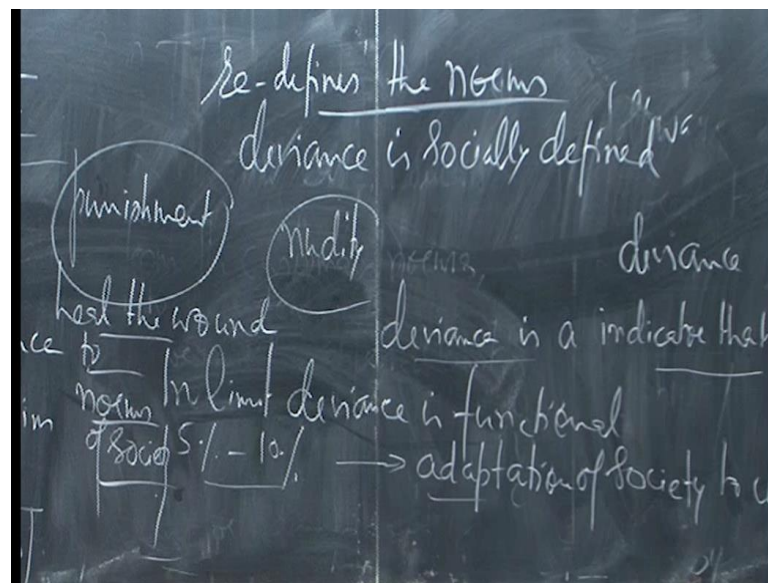 re-defines the norms
deviance is socially defined
punishment
nudity
norms,
deviance
heal the wound
deviance is a indicator that
to
norms
In limit deviance is functional
of societ
5% - 10%
→ adaptation of society to